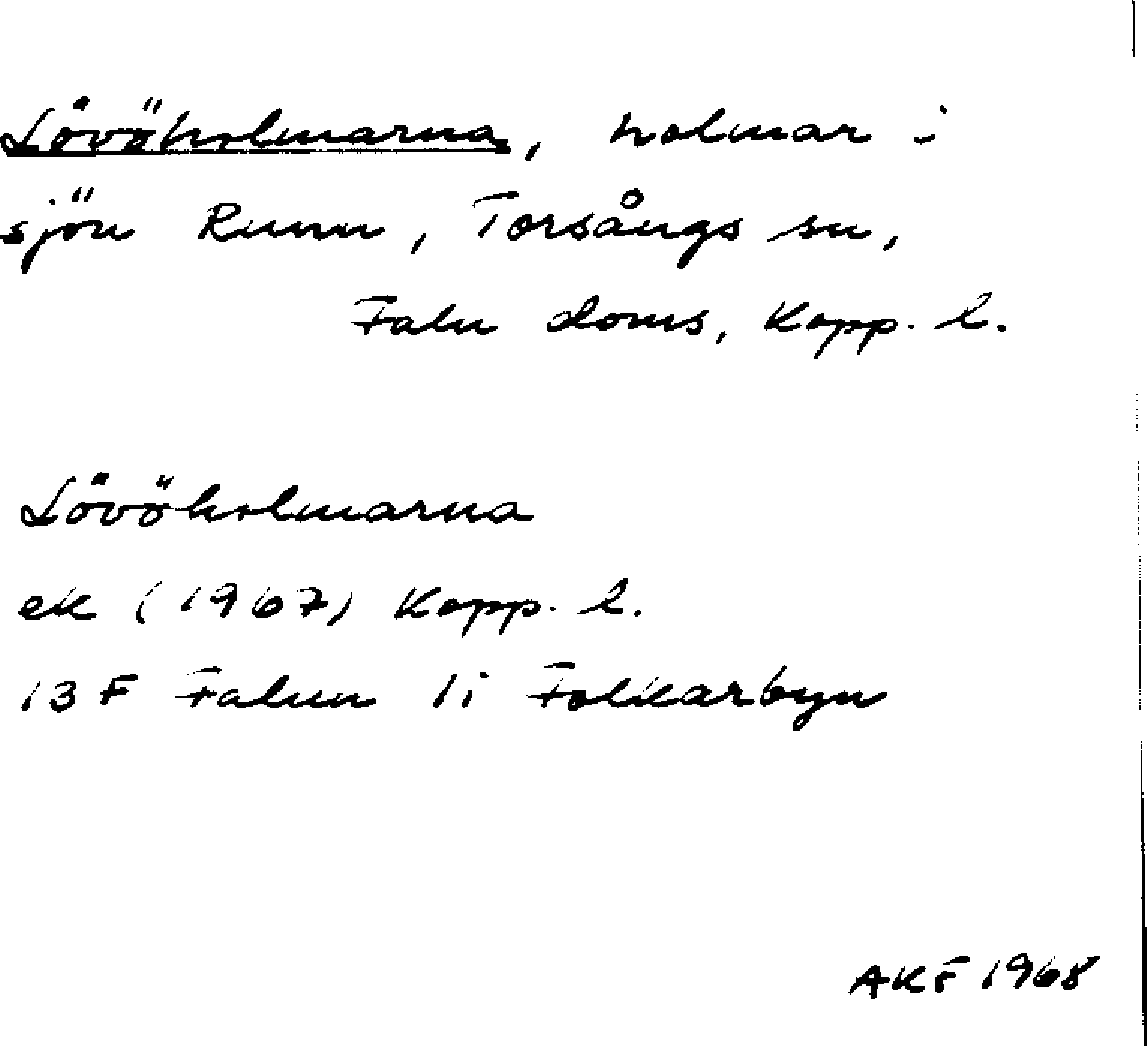 Lövöholmarna, holmar i
sjön Runn, Torsångs sn,
Falu doms, Kopp. l.
Lövöholmarna
ek (1967) Kopp. l.
13 F Falun 1i Folkarbyn
AKF 1968